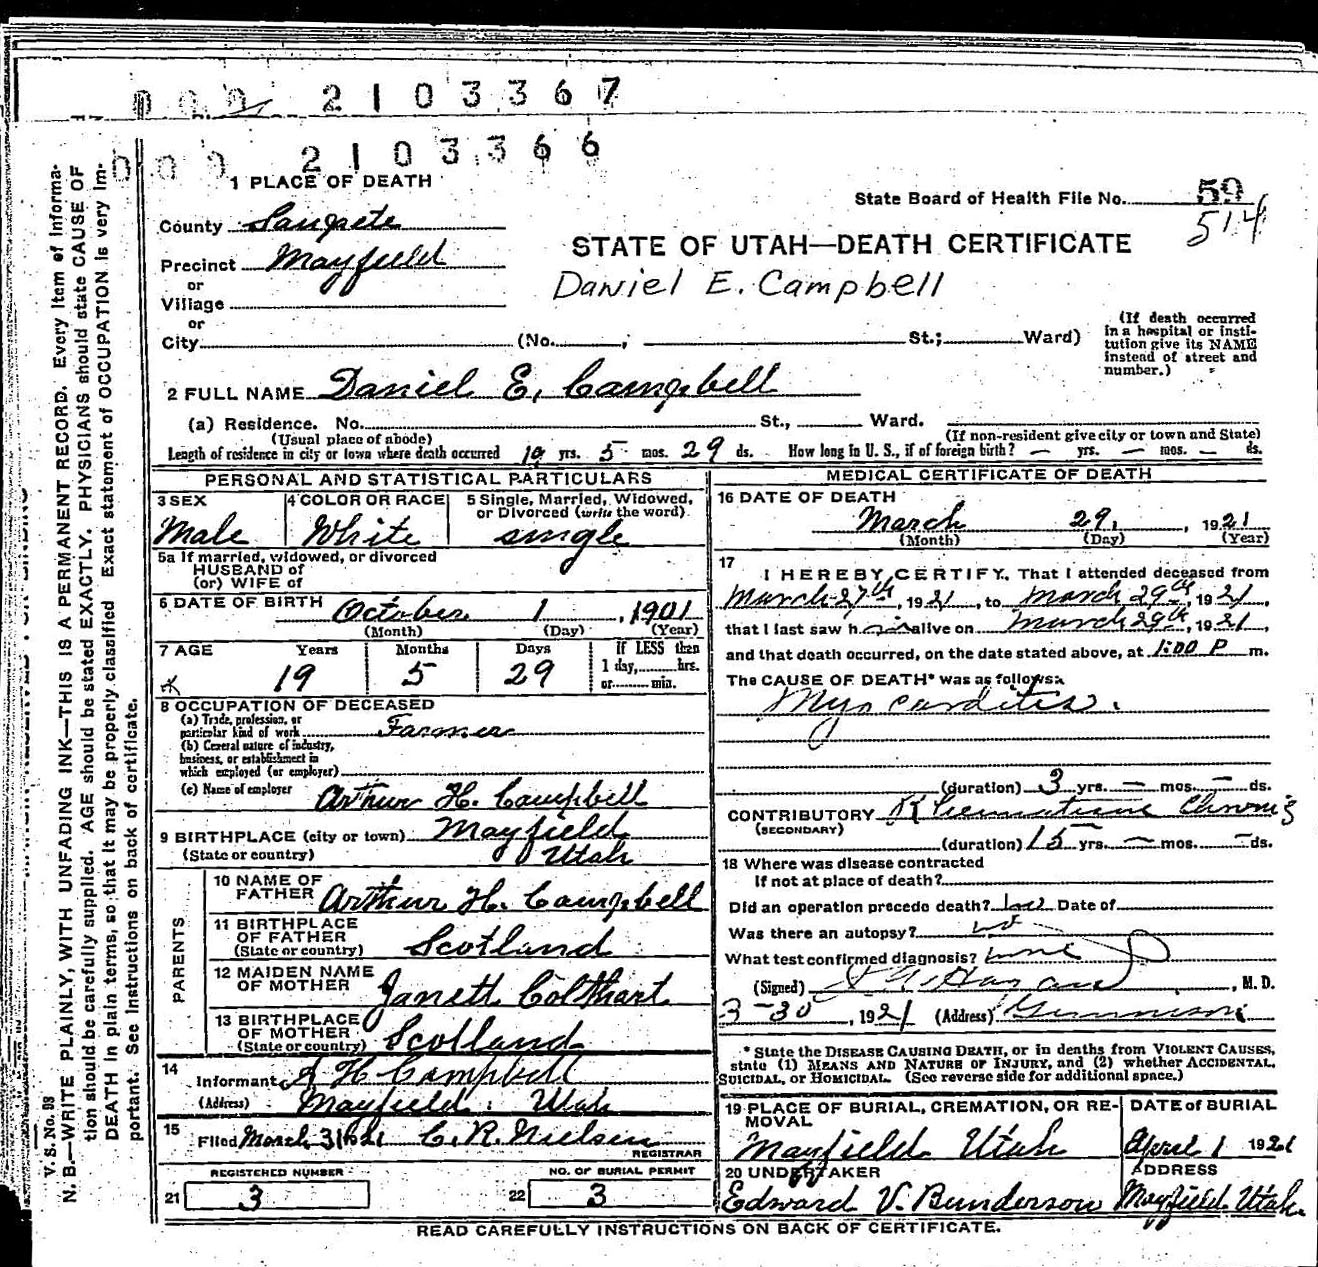 000 2103367
000 2103366
1 PLACE OF DEATH
County Sanpete
Precinct Mayfield
or
Village
or
City (No. , St.; Ward)
State Board of Health File No. 59
514
STATE OF UTAH—DEATH CERTIFICATE
Daniel E. Campbell
(If death occurred
in a hospital or insti-
tution give its NAME
instead of street and
number.)
2 FULL NAME Daniel E. Campbell
(a) Residence. No. St., Ward.
(Usual place of abode) (If non-resident give city or town and State)
Length of residence in city or town where death occurred 19 yrs. 5 mos. 29 ds. How long in U. S., if of foreign birth? — yrs. — mos. — ds.
PERSONAL AND STATISTICAL PARTICULARS
3 SEX
Male
4 COLOR OR RACE
White
5 Single, Married, Widowed,
or Divorced (write the word)
single
5a If married, widowed, or divorced
HUSBAND of
(or) WIFE of
6 DATE OF BIRTH October 1, 1901
(Month) (Day) (Year)
7 AGE Years Months Days If LESS than
1 day, hrs.
or min.
19 5 29
8 OCCUPATION OF DECEASED
(a) Trade, profession, or
particular kind of work Farmer
(b) General nature of industry,
business, or establishment in
which employed (or employer)
(c) Name of employer Arthur H. Campbell
9 BIRTHPLACE (city or town) Mayfield
(State or country) Utah
PARENTS
10 NAME OF
FATHER Arthur H. Campbell
11 BIRTHPLACE
OF FATHER
(State or country) Scotland
12 MAIDEN NAME
OF MOTHER Janett Colthart
13 BIRTHPLACE
OF MOTHER
(State or country) Scotland
14
Informant A H Campbell
(Address) Mayfield, Utah
15
Filed March 31, 1921 C. R. Nielsen
REGISTRAR
REGISTERED NUMBER
21 3
NO. OF BURIAL PERMIT
22 3
MEDICAL CERTIFICATE OF DEATH
16 DATE OF DEATH
March 29, 1921
(Month) (Day) (Year)
17
I HEREBY CERTIFY, That I attended deceased from
March 27th, 1921, to March 29th, 1921,
that I last saw him alive on March 29th, 1921
and that death occurred, on the date stated above, at 1:00 P m.
The CAUSE OF DEATH* was as follows:
Myocarditis.
(duration) 3 yrs. — mos. — ds.
CONTRIBUTORY Rheumatism Chronic
(SECONDARY)
(duration) 15 yrs. — mos. — ds.
18 Where was disease contracted
if not at place of death?
Did an operation precede death? No Date of
Was there an autopsy? No
What test confirmed diagnosis? none
(Signed) , M. D.
3-30, 1921 (Address) Gunnison
* State the DISEASE CAUSING DEATH, or in deaths from VIOLENT CAUSES,
state (1) MEANS AND NATURE OF INJURY, and (2) whether ACCIDENTAL,
SUICIDAL, or HOMICIDAL. (See reverse side for additional space.)
19 PLACE OF BURIAL, CREMATION, OR RE-
MOVAL
Mayfield Utah
DATE of BURIAL
April 1 1921
20 UNDERTAKER
Edward V. Bunderson
ADDRESS
Mayfield Utah.
READ CAREFULLY INSTRUCTIONS ON BACK OF CERTIFICATE.
V. S. No. 98
N. B.—WRITE PLAINLY, WITH UNFADING INK—THIS IS A PERMANENT RECORD. Every item of informa-
tion should be carefully supplied. AGE should be stated EXACTLY. PHYSICIANS should state CAUSE OF
DEATH in plain terms, so that it may be properly classified. Exact statement of OCCUPATION is very im-
portant. See instructions on back of certificate.